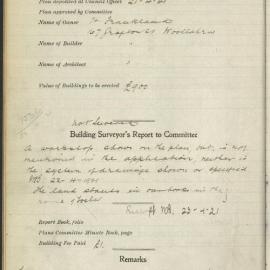 Plan deposited at Council Office 21-4-21
Plan approved by Committee
Name of Owner H Frankland
67 Grafton St Woollahra
Name of Builder
"
Name of Architect "
"
Value of Buildings to be erected £900
not sewered
Building Surveyor's Report to Committee
A workshop shown on the plan, but is not
mentioned in the application, neither is
the system of drainage shown or specified
22-4-1921
The land stands in the
name of
23-4-21
Report Book, folio
Plans Committee Minute Book, page
Building Fee Paid £1.
Remarks